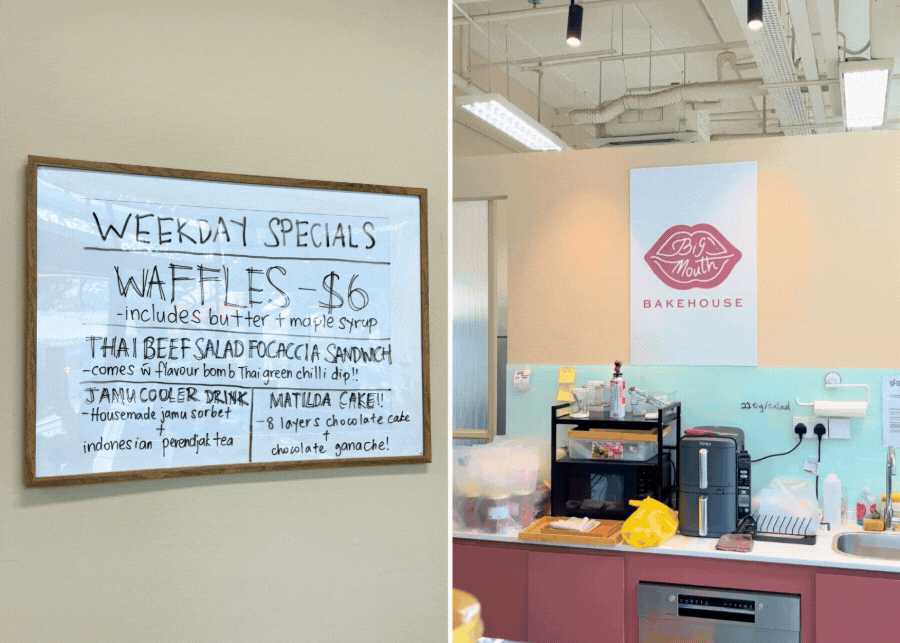 WEEKDAY SPECIALS
WAFFLES - $6
- includes butter + maple syrup
THAI BEEF SALAD FOCACCIA SANDWICH
- comes w̄ flavour bomb Thai green chilli dip!!
JAMU COOLER DRINK
- Housemade jamu sorbet
+
indonesian perendjak tea
MATILDA CAKE!!
- 8 layers chocolate cake
+
chocolate ganache!
Big
Mouth
BAKEHOUSE
220g/salad
NINJA